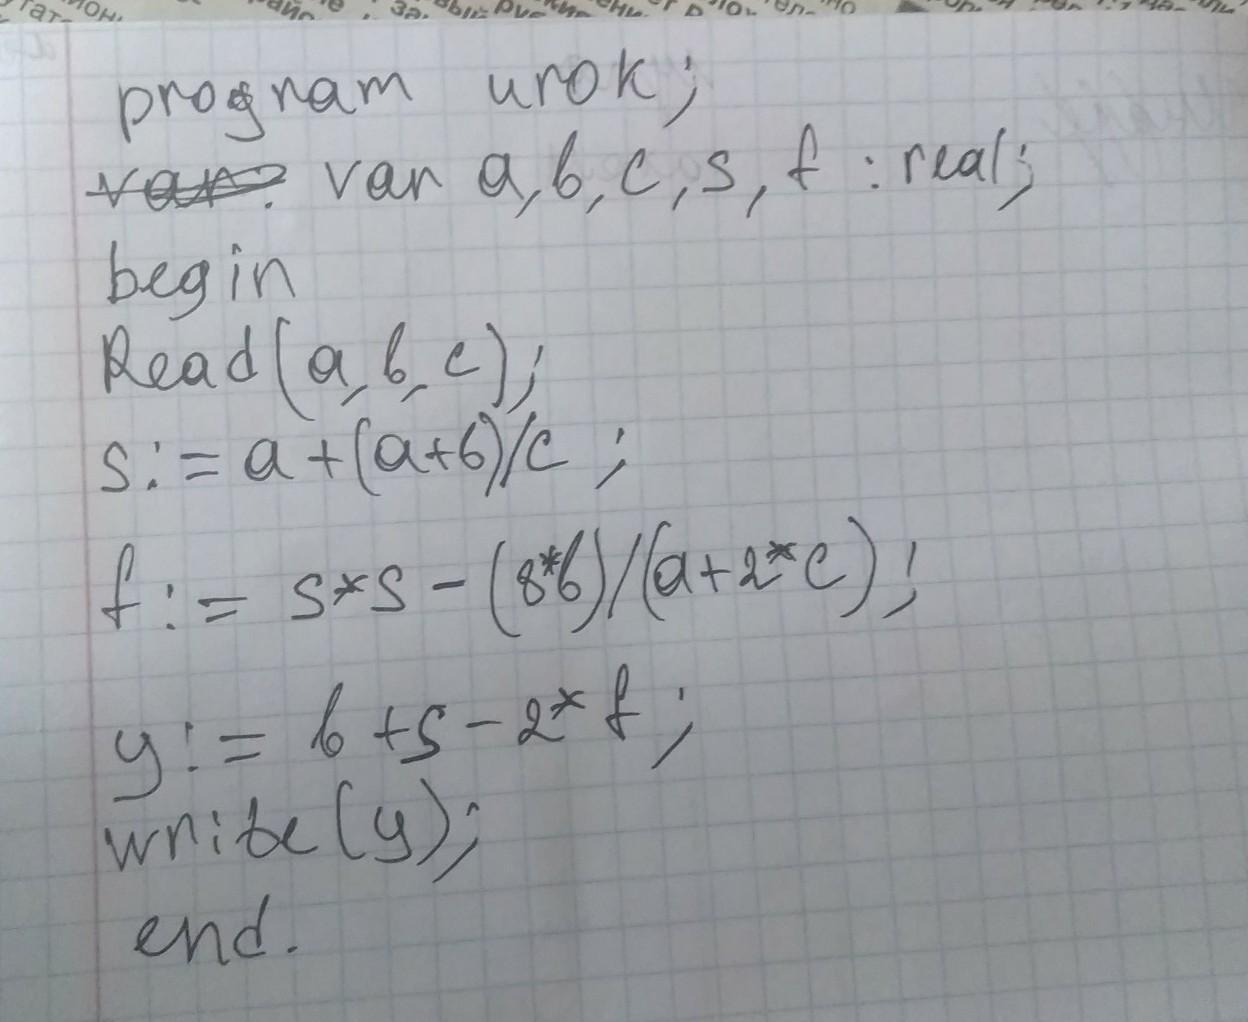 program urok;
var a, b, c, s, f : real;
begin
Read(a, b, c);
s := a + (a+b)/c ;
f := s*s - (8*b)/(a+2*c) ;
y := b + s - 2* f ;
write(y);
end.